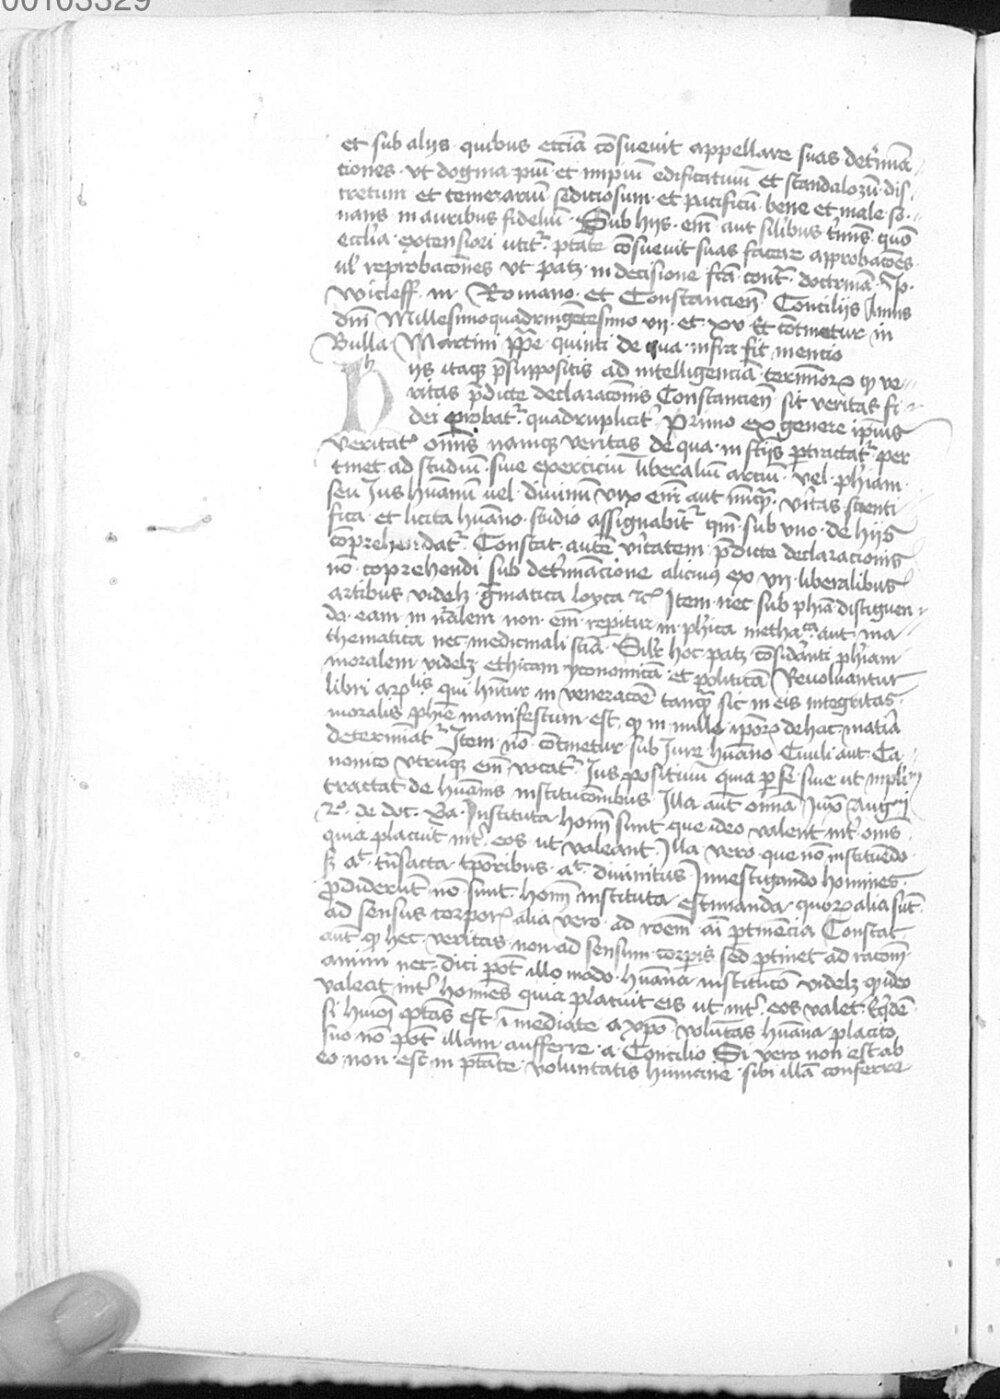 00103329
et sub aliis quibus eccīa cōsuevit appellare suas detīmīa
ciones · ut dogma piū et impiū edificativū et scandalozū dis
cretum et temerariū sediciosum et pacificū bene et male so
nans in auribus fidelium · Sub hiis eīm aut silibus tīmīs quō
eccīia extensiori utitr ptāte cōsuevit suas facere approbacōes
ul reprobacōnes ut patz in decisione fcā contr doctrinā Io
Wicleff in Romano et Constancieñ Conciliis Annis
dnī Millesimoquadringētesimo vii et xv Et cōtinetur in
Bulla Martini ppe quinti de qua infra fit mencio
Hiis itaqz psuppositis ad intelligenciā terminorꝝ qꝫ ve
ritas pdicte declaracōnis Constancieñ sit veritas fi
dei probatr quadruplicitr Primo ex genere ipius
veritatꝭ omīs namqꝫ veritas de qua in sciis ptractatr per
tinet ad studiū sive exerciciū liberaliū arciū vel phiam
seu Ius huānū vel divinū vix eīm aut nunqꝫ vitas scienti
fica et licita huāno studio assignabitr qīn sub uno de hiis
cōprehendatr Constat autē vitatem pdicte declaracionis
nō coprehendi sub detīmīacione alicuius ex vii liberalibus
artibus videlꝫ gmatica loyca ꝛc Item nec sub phīa distinguen
do eam in nālem non eīm repitur in phica methaca aut ma
thematica nec medicinali sciā Silr hoc patꝫ cōsidānti phiam
moralem videlꝫ ethicam yconomicā et politicā Revolvantur
libri arꝭlis qui hntur in veneracōe tanqꝫ sic in eis integritas
moralis phie manifestum est qꝫ in nullo ipōrꝝ de hac matia
determīatr Item nō cōtinetur sub Iure huāno Civili aut Ca
nonico utrunqꝫ eīm vocatr Ius positivū quia p se sive ut inpli
tractat de huānis institucōnibus Illa aūt omīa iuxͣ Augi
2º de doc xa Instituta hoīm sunt que ideo valent intr oīnes
quia placuit intr eos ut valeant Illa vero que nō instituēdo
sꝫ at trāsacta tporibus at divinitus Investigando homines
pdiderūt nō sunt hoīm instituta estimanda quorꝝ alia sūt
ad sensus corporꝭ alia vero ad roēm aī ptinēcia Constat
aūt qꝫ hec veritas non ad sensum corpis sed ptinet ad racōm
animi nec dici pōt illo modo huāna institucō videlꝫ qꝫ ideo
valeat intr homīes quia placuit eis ut intr eos valet
si huiōi ptās est īmediate a xpo volūtas huāna placito
suo nō pōt illam aufferre a Concilio Si vero non est ab
eo non est in ptāte voluntatis humane sibi illā conferre